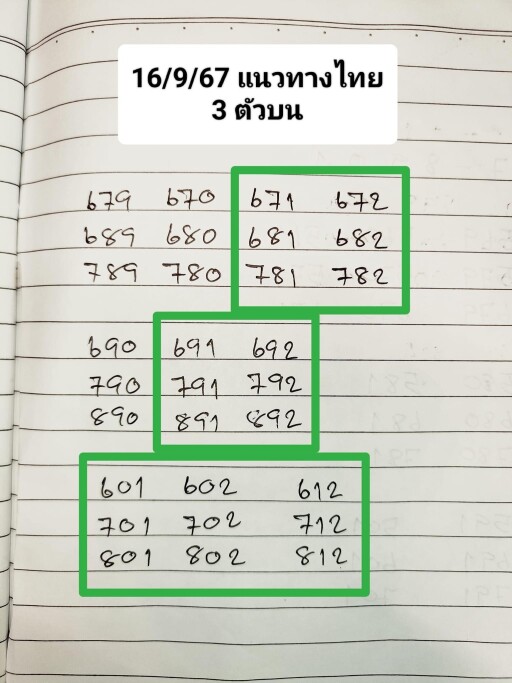 16/9/67 แนวทางไทย
3 ตัวบน
679 670 671 672
689 680 681 682
789 780 781 782
690 691 692
790 791 792
890 891 892
601 602 612
701 702 712
801 802 812